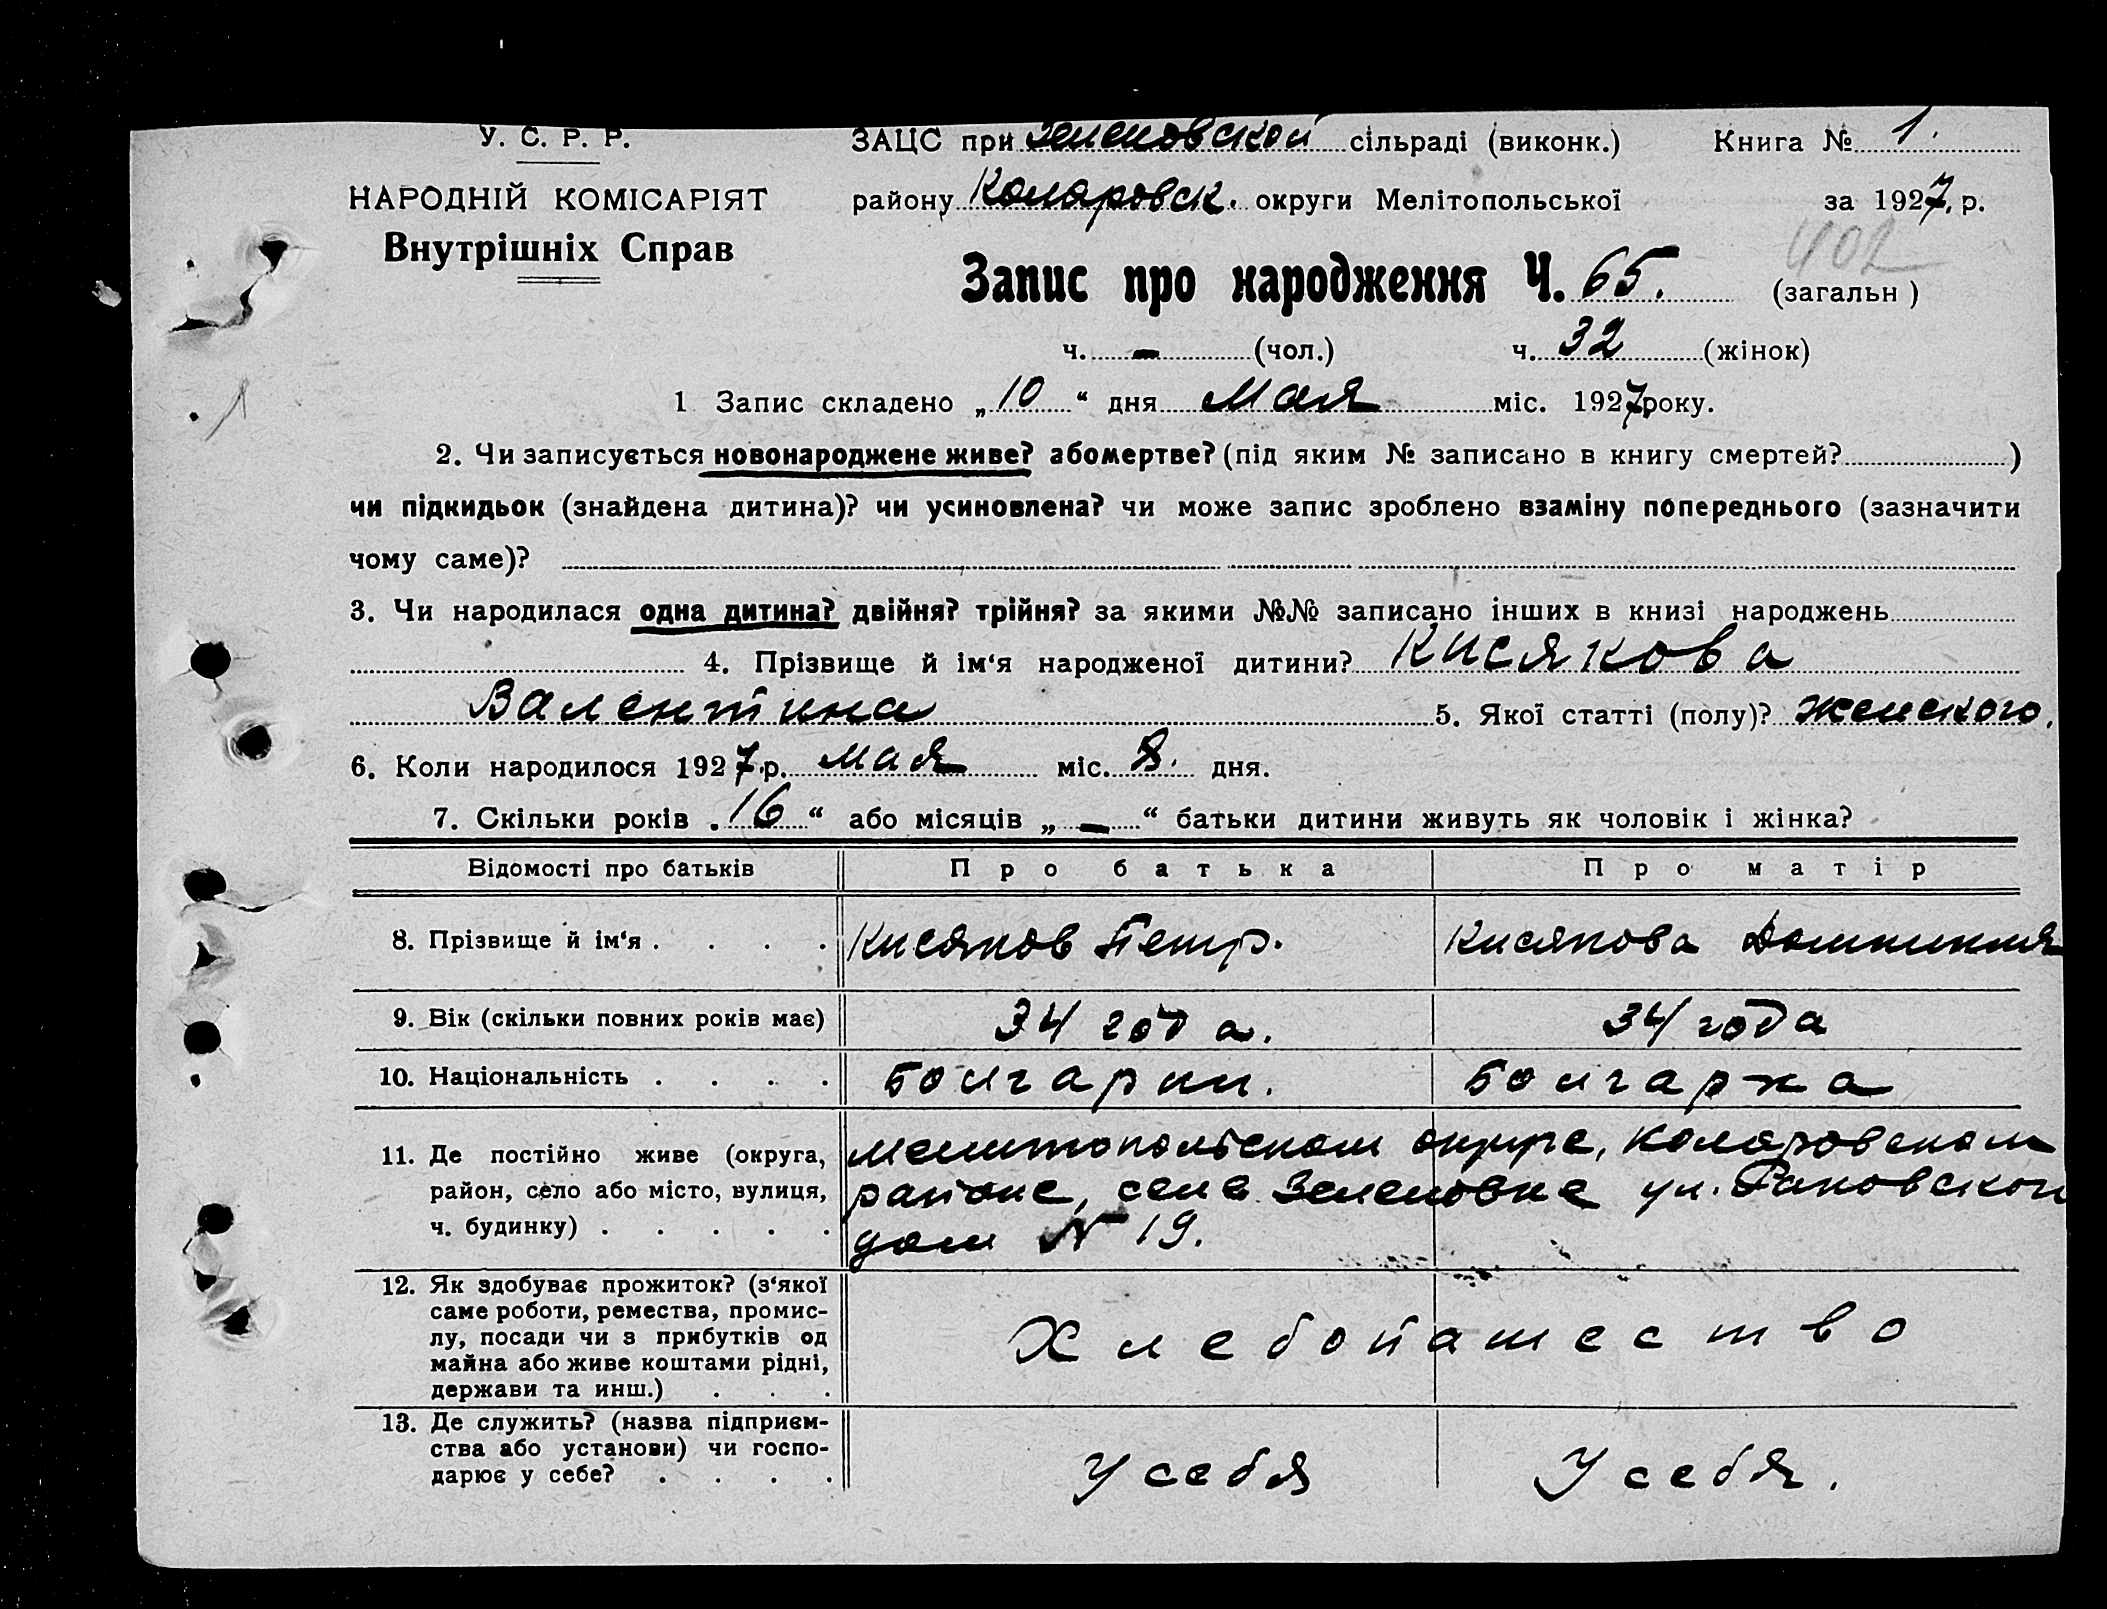 У. С. Р. Р.
НАРОДНІЙ КОМІСАРІЯТ
Внутрішніх Справ
ЗАЦС при Зеленовской сільраді (виконк.) Книга № 1.
району Коларовск. округи Мелітопольської за 1927, р.
402
Запис про народження Ч. 65. (загальн)
ч. — (чол.) ч. 32 (жінок)
1 Запис складено „10“ дня Мая міс. 1927 року.
2. Чи записується новонароджене живе? або мертве? (під яким № записано в книгу смертей? )
чи підкидьок (знайдена дитина)? чи усиновлена? чи може запис зроблено взаміну попереднього (зазначити
чому саме)?
3. Чи народилася одна дитина? двійня? трійня? за якими №№ записано інших в книзі народжень
4. Прізвище й ім‘я народженої дитини? Кисякова
Валентина 5. Якої статті (полу)? женского.
6. Коли народилося 1927 р. мая міс. 8. дня.
7. Скільки років „16“ або місяців „—“ батьки дитини живуть як чоловік і жінка?
Відомості про батьків Про батька Про матір
8. Прізвище й ім‘я . . . . Кисяков Петр. Кисякова
9. Вік (скільки повних років має) 34 года. 34 года
10. Національність . . . . Болгарин. Болгарка
11. Де постійно живе (округа, район, село або місто, вулиця, ч. будинку) . . . . .
Мелитопольском округе, Коларовском
районе, селе Зеленовке ул. Раковского
дом № 19.
12. Як здобуває прожиток? (з‘якої
саме роботи, ремества, промис-
лу, посади чи з прибутків од
майна або живе коштами рідні,
держави та инш.) . . .
Хлебопашество
13. Де служить? (назва підприєм-
ства або установи) чи госпо-
дарює у себе? . . . .
У себя У себя.